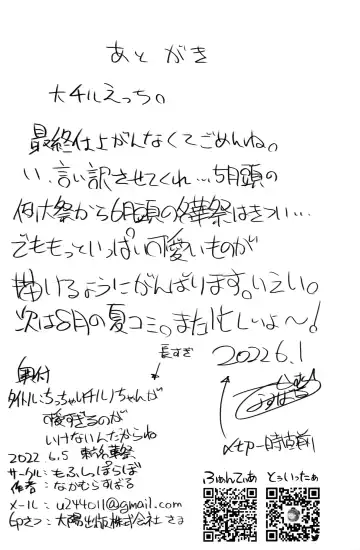 あとがき
大チルえっち。
最終仕上がんなくてごめんね。
い、言い訳させてくれ…5月頭の
例大祭から6月頭の名華祭はきつい…
でももっといっぱい可愛いものが
描けるようにがんばります。いえい。
次は8月の夏コミ。また忙しいよ〜!
長すぎ
2022 6.1
奥付
タイトル:ちっちゃいチルノちゃんが
いけないんだからね
2022 6.5
サークル:もふしっぽらぼ
作者:なかむらすばる
メール:u244011@gmail.com
いんさつ:太陽出版株式会社さま
〆切一時間前
ふぁんてぃあ
とぅいったあ